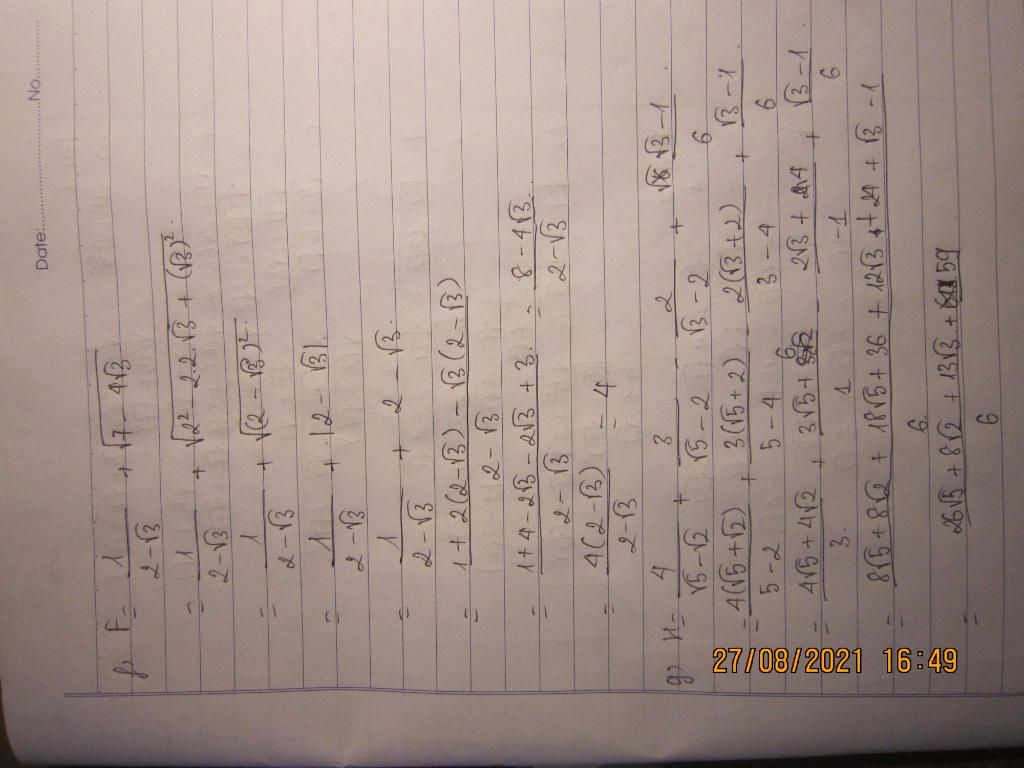 Date: No
f, F = 1/(2-√3) + √(7-4√3)
= 1/(2-√3) + √(2² - 2.2√3 + (√3)²)
= 1/(2-√3) + √((2-√3)²)
= 1/(2-√3) + |2-√3|
= 1/(2-√3) + 2-√3.
= (1+2(2-√3) - √3(2-√3))/(2-√3)
= (1+4-2√3-2√3+3)/(2-√3) = (8-4√3)/(2-√3)
= 4(2-√3)/(2-√3) = 4
g, H = 4/(√5-√2) + 3/(√5-2) - 2/(√3-2) + (√3-1)/6
= 4(√5+√2)/(5-2) + 3(√5+2)/(5-4) - 2(√3+2)/(3-4) + (√3-1)/6
= (4√5+4√2)/3 + (3√5+6)/1 - (2√3+4)/(-1) + (√3-1)/6
= (8√5+8√2+18√5+36+12√3+24+√3-1)/6
= (26√5+8√2+13√3+59)/6
27/08/2021 16:49